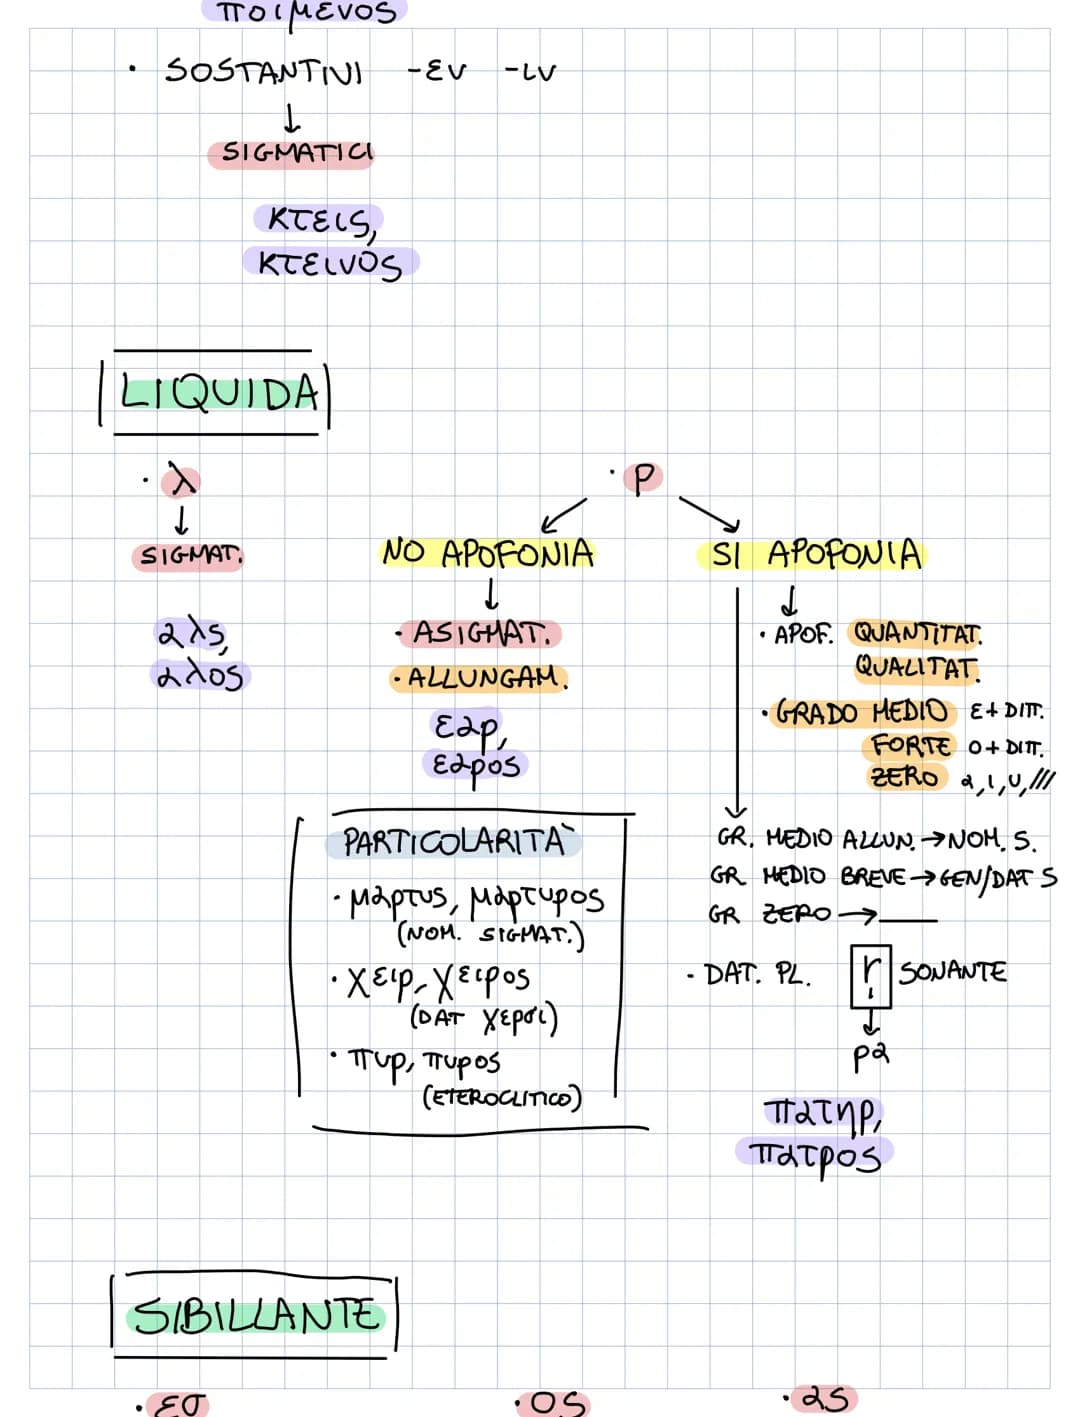 ποιμενος
· SOSTANTIVI -εν -ιν
↓
SIGMATICI
κτεις,
κτεινός
LIQUIDA
· λ
↓
SIGMAT.
αλς,
αλος
· ρ
NO APOFONIA
↓
· ASIGMAT.
· ALLUNGAM.
εαρ,
εαρος
PARTICOLARITÀ
· μάρτυς, μάρτυρος
(NOM. SIGMAT.)
· χειρ, χειρος
(DAT χερσι)
· πυρ, πυρος
(ETEROCLITICO)
SI APOFONIA
↓
· APOF. QUANTITAT.
QUALITAT.
· GRADO MEDIO ε + DITT.
FORTE ο + DITT.
ZERO α, ι, υ, ///
GR. MEDIO ALLUN. → NOM. S.
GR MEDIO BREVE → GEN/DAT S
GR ZERO → ___
- DAT. PL. r̩ SONANTE
↓
ρα
πατηρ,
πατρος
SIBILLANTE
· εσ
· ος
· ας